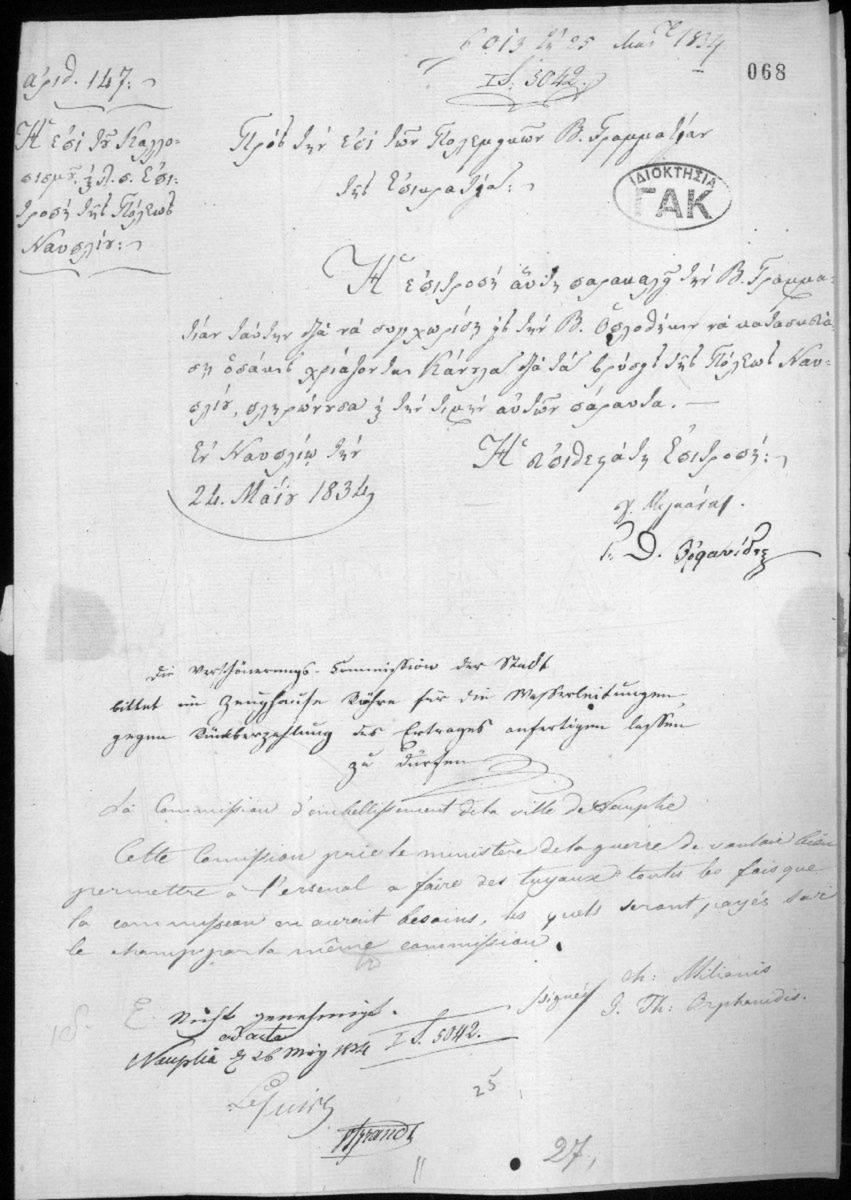 6013 τη 25 Μαΐ 1834
I S. 5042.
068
αριθ. 147.
Ἡ ἐπὶ τοῦ Καλλο-
πισμοῦ, κ.τ.λ. Ἐπι-
τροπὴ τῆς Πόλεως
Ναυπλίου.
Πρὸς τὴν ἐπὶ τῶν Πολεμικῶν Β. Γραμματείαν
τῆς Ἐπικρατείας.
ΙΔΙΟΚΤΗΣΙΑ
ΓΑΚ
Ἡ ἐπιτροπὴ αὕτη παρακαλεῖ τὴν Β. Γραμμα-
τείαν ταύτην διὰ νὰ συγχωρίσῃ εἰς τὴν Β. Ὁπλοθήκην νὰ κατασκευά-
ση ὁσάκις χριάζονται Κάνλα διὰ τὰς βρύσεις τῆς Πόλεως Ναυ-
πλίου, πληρώνουσα τὴν τιμὴν αὐτῶν πάραυτα. —
Ἐν Ναυπλίῳ τὴν
24. Μαΐου 1834
Ἡ Ἐπιτροπή.
Θ. Ὀρφανίδης
Die Verschönerungs-Commission der Stadt
bittet im Zeughause Röhre für die Wasserleitungen
gegen Rückbezahlung des Ertrages anfertigen lassen
zu dürfen
La Commission d'embellissement de la ville de Nauplie
Cette Comission prie le ministère de la guerre de vouloir bien
permettre à l'arsenal a faire des tuyaux toutes les fois que
la commission en aurait besoins, les quels seront payés sur
le champ par la même commission.
signés Ch: Milianis
G. Th: Orphanidis.
E. Nicht genehmigt.
ad acta
Nauplia d 26 May 1834 I S. 5042.
25
27,